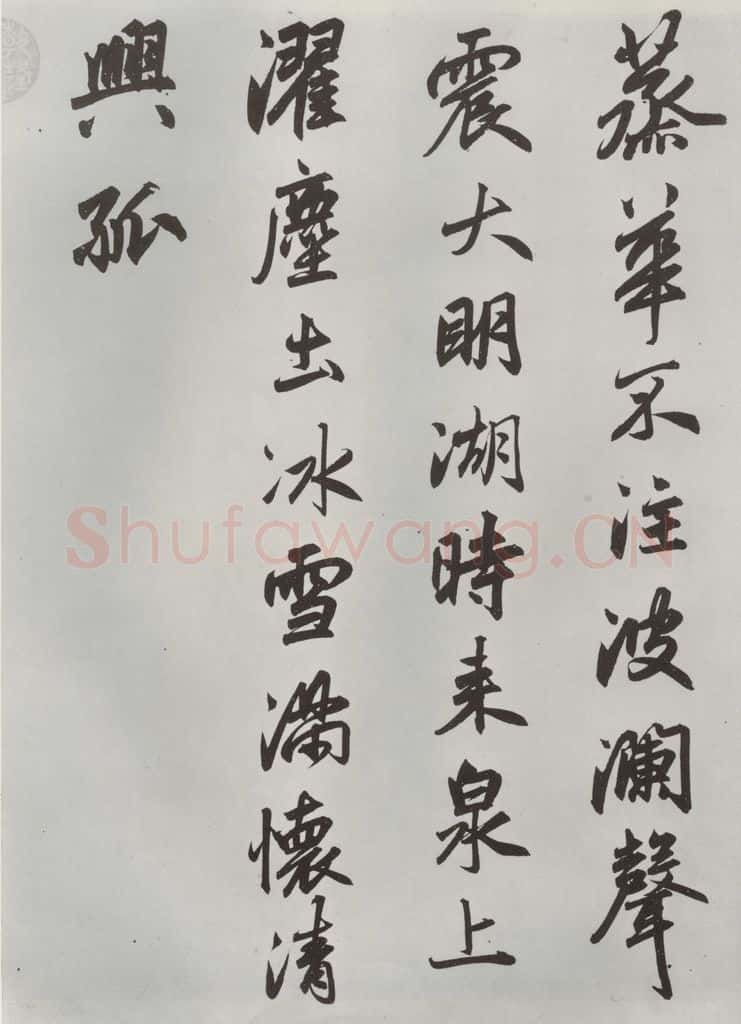 蒸華不注波瀾聲
震大明湖時来泉上
濯塵出冰雪滿懷清
興孤
Shufawang.CN